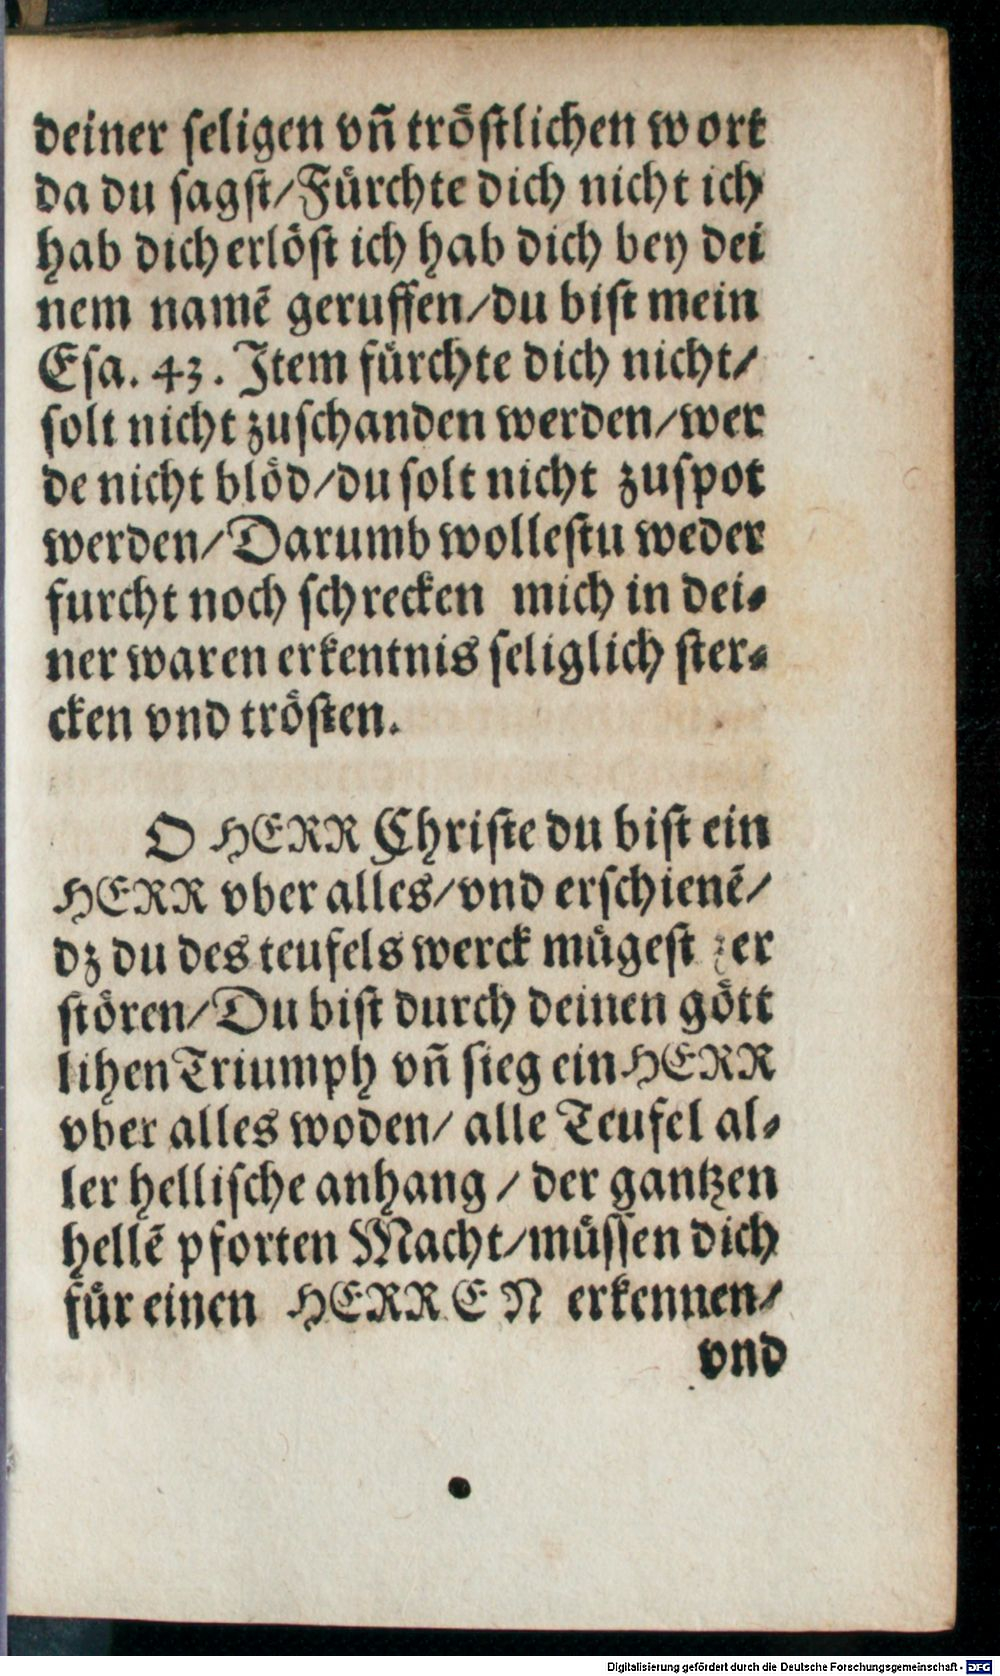 deiner seligen vñ tröstlichen wort
da du sagst/Fürchte dich nicht ich
hab dich erlöst ich hab dich bey dei
nem namē geruffen/du bist mein
Esa. 43. Item fürchte dich nicht/
solt nicht zuschanden werden/wer
de nicht blöd/du solt nicht zuspot
werden/Darumb wollestu weder
furcht noch schrecken mich in dei-
ner waren erkentnis seliglich ster-
cken vnd trösten.
O HERR Christe du bist ein
HERR vber alles/vnd erschienē/
dz du des teufels werck mügest zer
stören/Du bist durch deinen gött
lihen Triumph vñ sieg ein HERR
vber alles woden/ alle Teufel al-
ler hellische anhang / der gantzen
hellē pforten Macht/müssen dich
für einen HERREN erkennen/
vnd
Digitalisierung gefördert durch die Deutsche Forschungsgemeinschaft - DFG